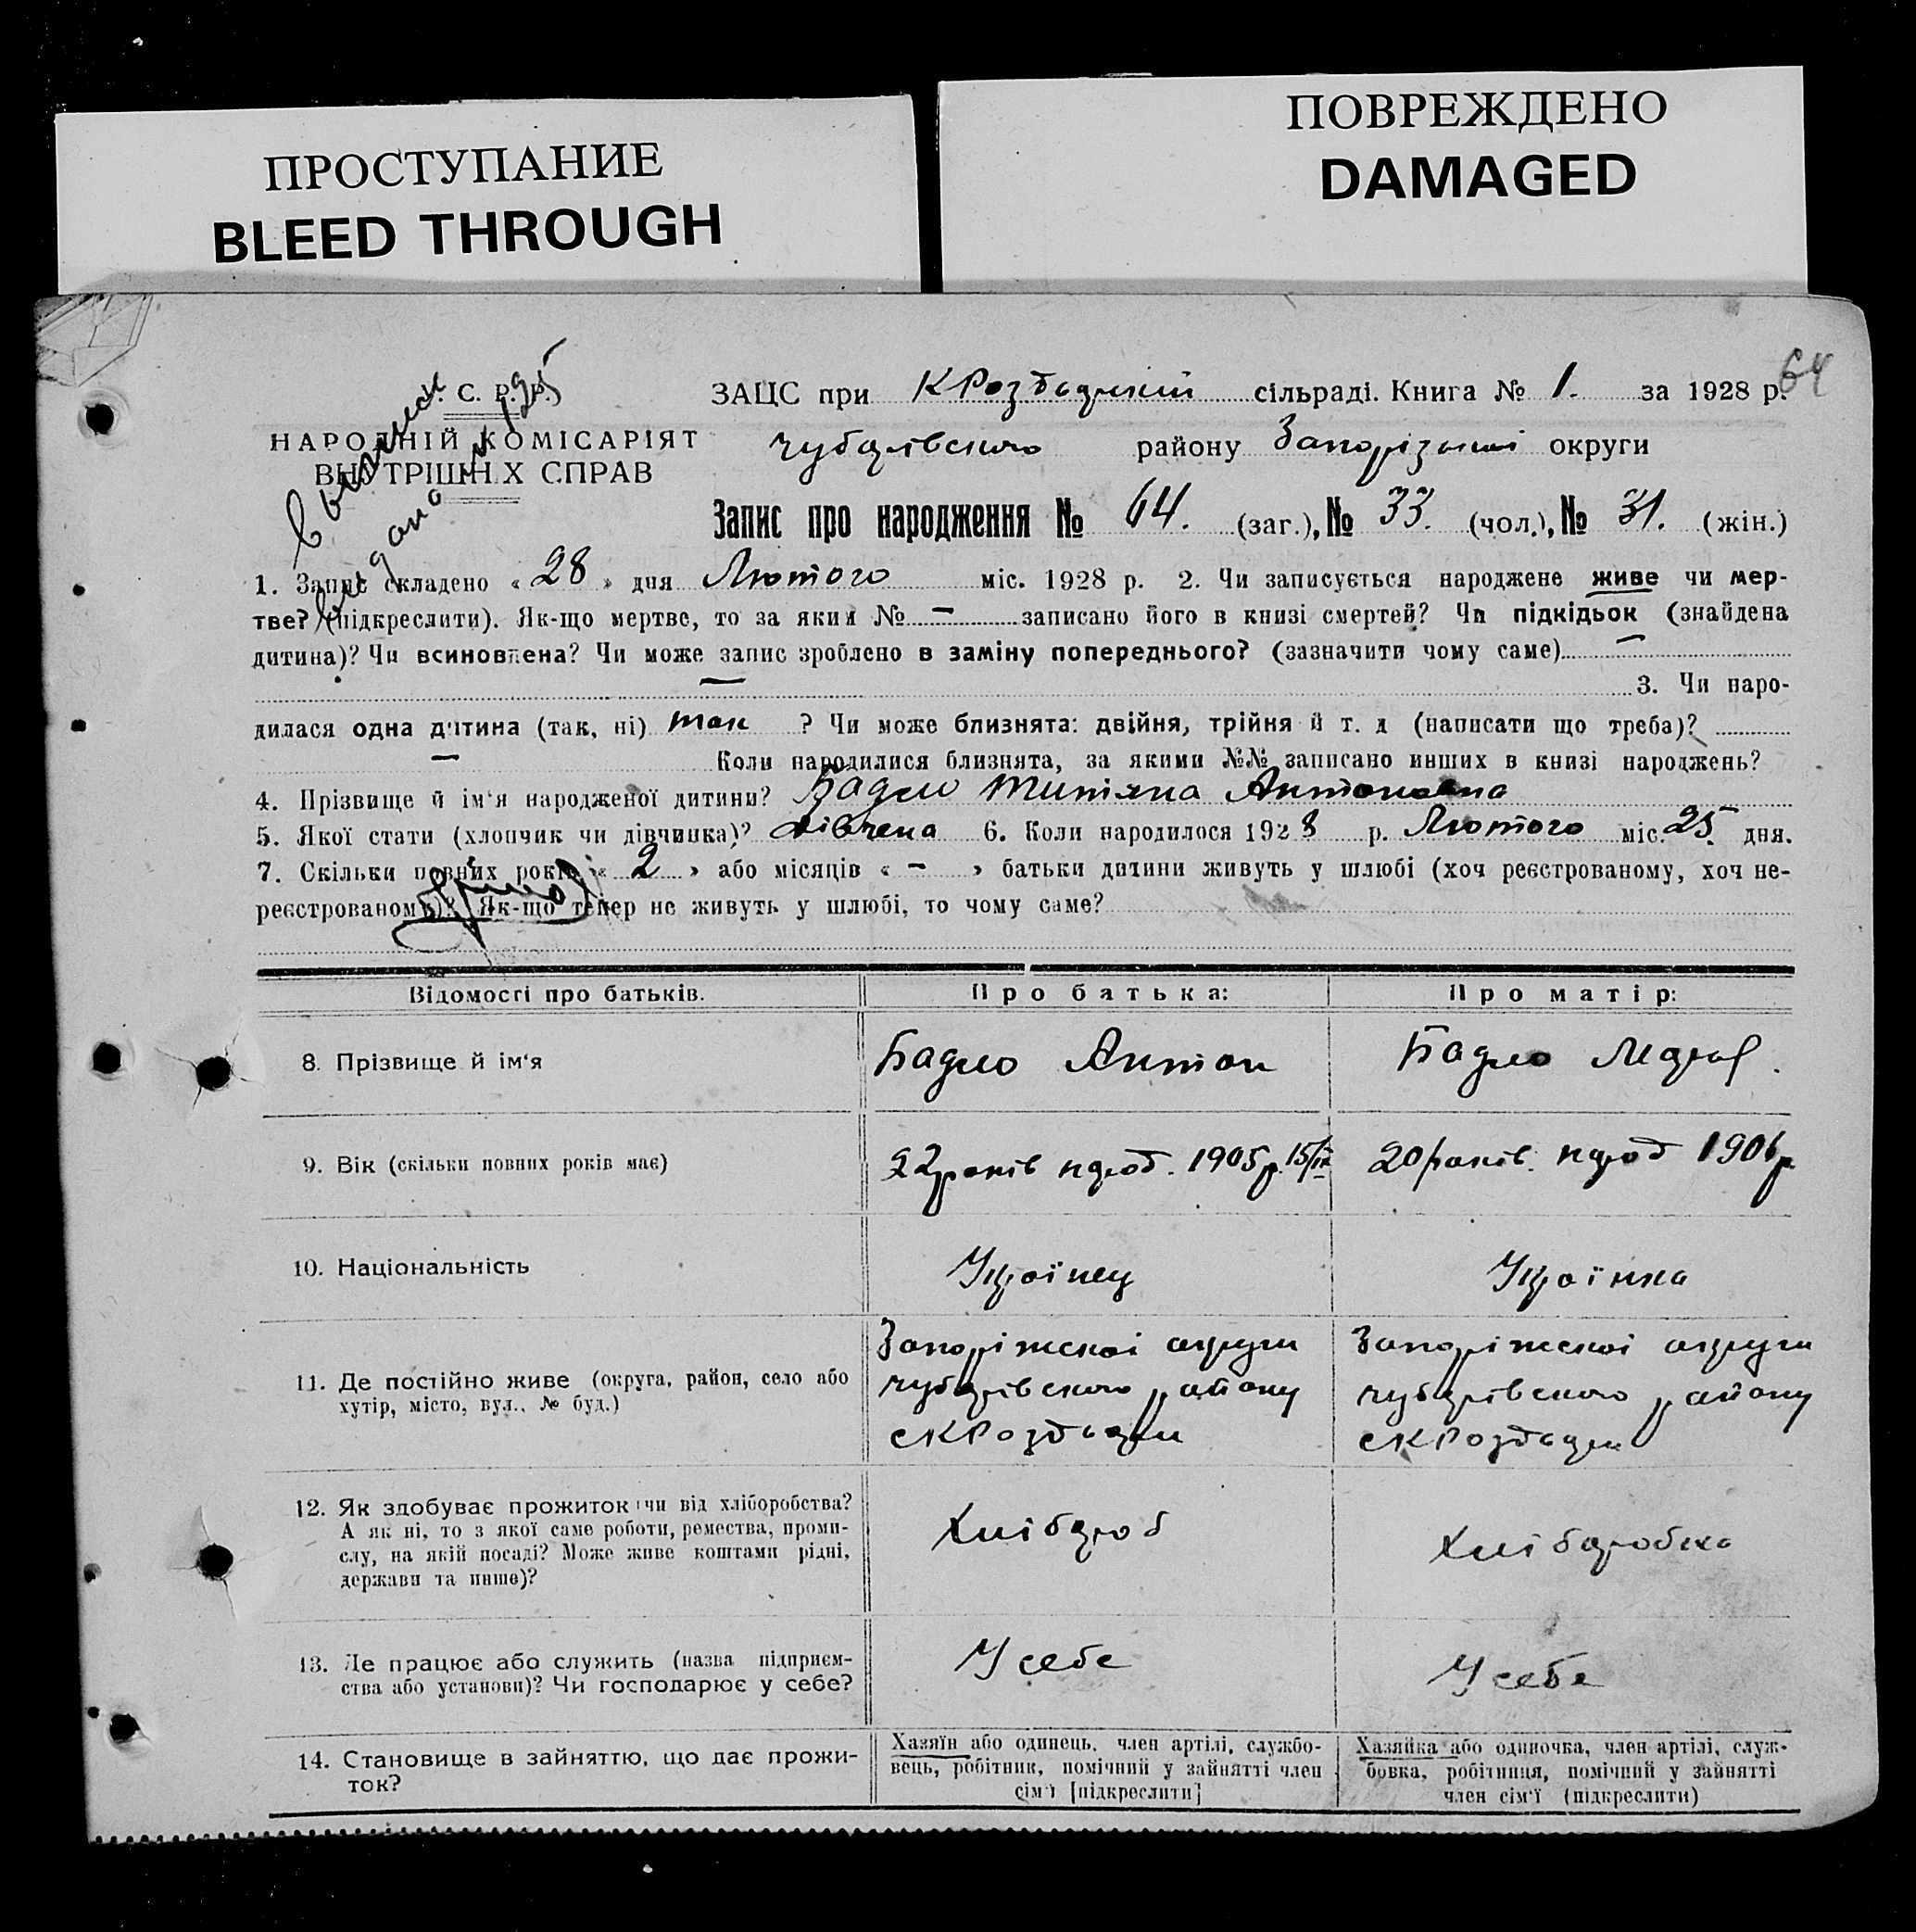 ПРОСТУПАНИЕ
BLEED THROUGH
ПОВРЕЖДЕНО
DAMAGED
64
С. Р. Р.
НАРОДНІЙ КОМІСАРІЯТ
ВНУТРІШНІХ СПРАВ
ЗАЦС при КРоздьорский сільраді. Книга № 1. за 1928 р.
чубарівського району Запорізькоі округи
Запис про народження № 64. (заг.), № 33. (чол.), № 31. (жін.)
1. Запис складено « 28 » дня Лютого міс. 1928 р. 2. Чи записується народжене живе чи мер-
тве? (підкреслити). Як-що мертве, то за яким № – записано його в книзі смертей? Чи підкідьок (знайдена
дитина)? Чи всиновлена? Чи може запис зроблено в заміну попереднього? (зазначити чому саме) –
– 3. Чи наро-
дилася одна дитина (так, ні) так ? Чи може близнята: двійня, трійня й т. д (написати що треба)?
– Коли народилися близнята, за якими №№ записано инших в книзі народжень?
4. Прізвище й ім'я народженої дитини? Бадло Титяна Антоновна
5. Якої стати (хлопчик чи дівчинка)? дівчена 6. Коли народилося 1928 р. Лютого міс. 25 дня.
7. Скільки повних років « 2 » або місяців « – » батьки дитини живуть у шлюбі (хоч реєстрованому, хоч не-
реєстрованому)? Як-що тепер не живуть у шлюбі, то чому саме?
Відомості про батьків. Про батька: Про матір:
8. Прізвище й ім'я Бадло Антон Бадло
9. Вік (скільки повних років має) 22 років 1905 р. 15/IX 20 років. 1906 р.
10. Національність Украінец Украінка
11. Де постійно живе (округа, район, село або
хутір, місто, вул., № буд.)
Запоріжскоі округи
чубарівського району
с КРоздьори
Запоріжскоі округи
чубарівського району
с КРоздьори
12. Як здобуває прожиток: чи від хліборобства?
А як ні, то з якої саме роботи, ремества, проми-
слу, на якій посаді? Може живе коштами рідні,
держави та инше)?
Хлібороб
Хліборобка
13. Де працює або служить (назва підприєм-
ства або установи)? Чи господарює у себе?
У себе
У себе
14. Становище в зайняттю, що дає прожи-
ток?
Хазяїн або одинець, член артілі, службо-
вець, робітник, помічний у зайнятті член
сім'ї [підкреслити]
Хазяйка або одиночка, член артілі, служ-
бовка, робітниця, помічний у зайнятті
член сім'ї (підкреслити)